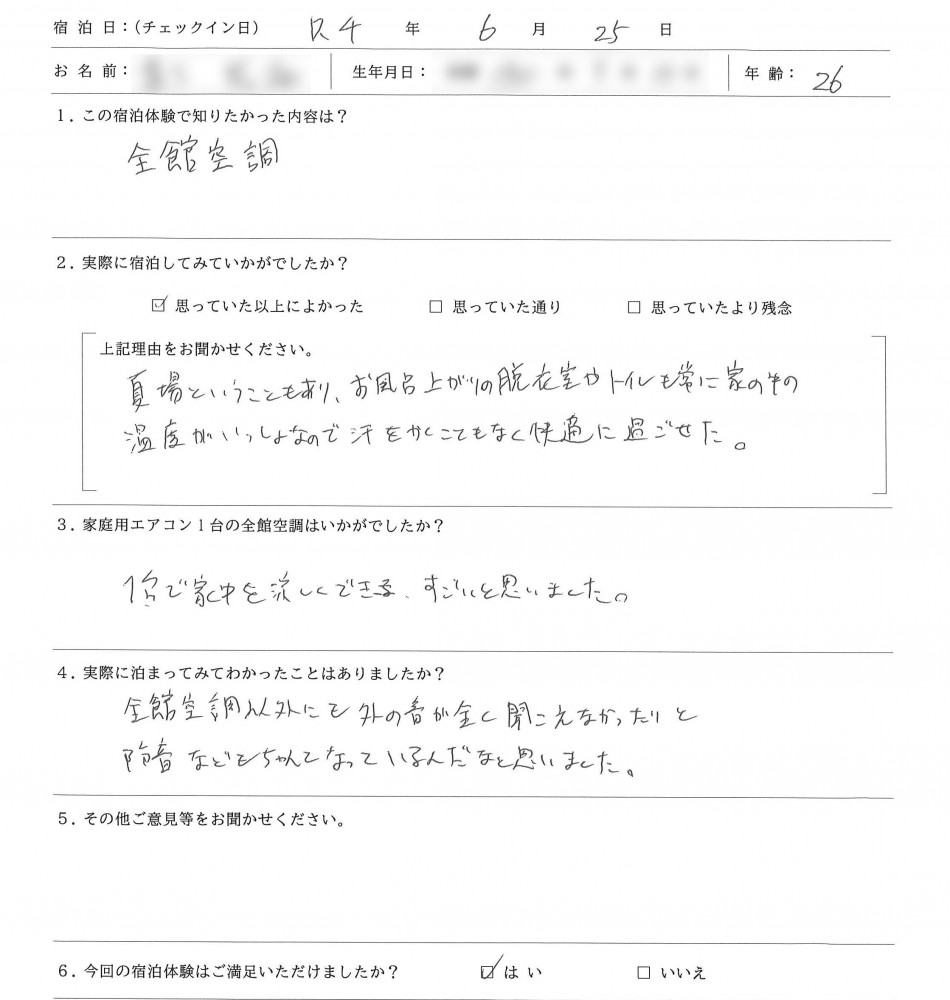 宿泊日：（チェックイン日） R4 年 6 月 25 日
お名前： 生年月日： 年齢： 26
1．この宿泊体験で知りたかった内容は？
全館空調
2．実際に宿泊してみていかがでしたか？
☑ 思っていた以上によかった □ 思っていた通り □ 思っていたより残念
上記理由をお聞かせください。
夏場ということもあり、お風呂上がりの脱衣室やトイレも常に家の中の
温度がいっしょなので汗をかくこともなく快適に過ごせた。
3．家庭用エアコン1台の全館空調はいかがでしたか？
1台で家中を涼しくできる、すごいと思いました。
4．実際に泊まってみてわかったことはありましたか？
全館空調以外にも外の音が全く聞こえなかったりと
防音などもちゃんとなっているんだなと思いました。
5．その他ご意見等をお聞かせください。
6．今回の宿泊体験はご満足いただけましたか？ ☑ はい □ いいえ